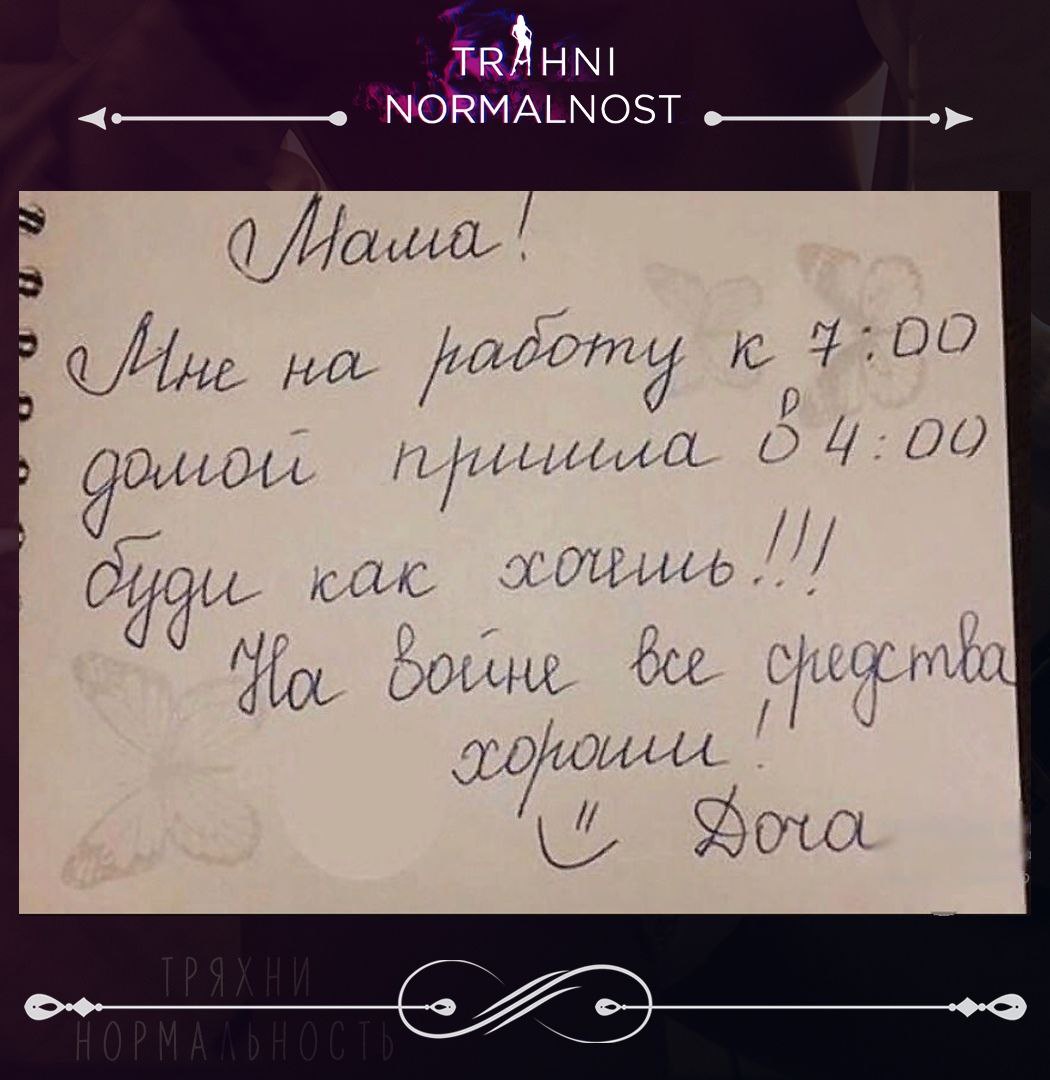 TRAHNI
NORMALNOST
Мама!
Мне на работу к 7:00
домой пришла в 4:00
буди как хочешь!!!
На войне все средства
хороши!
Доча
ТРЯХНИ
НОРМАЛЬНОСТЬ